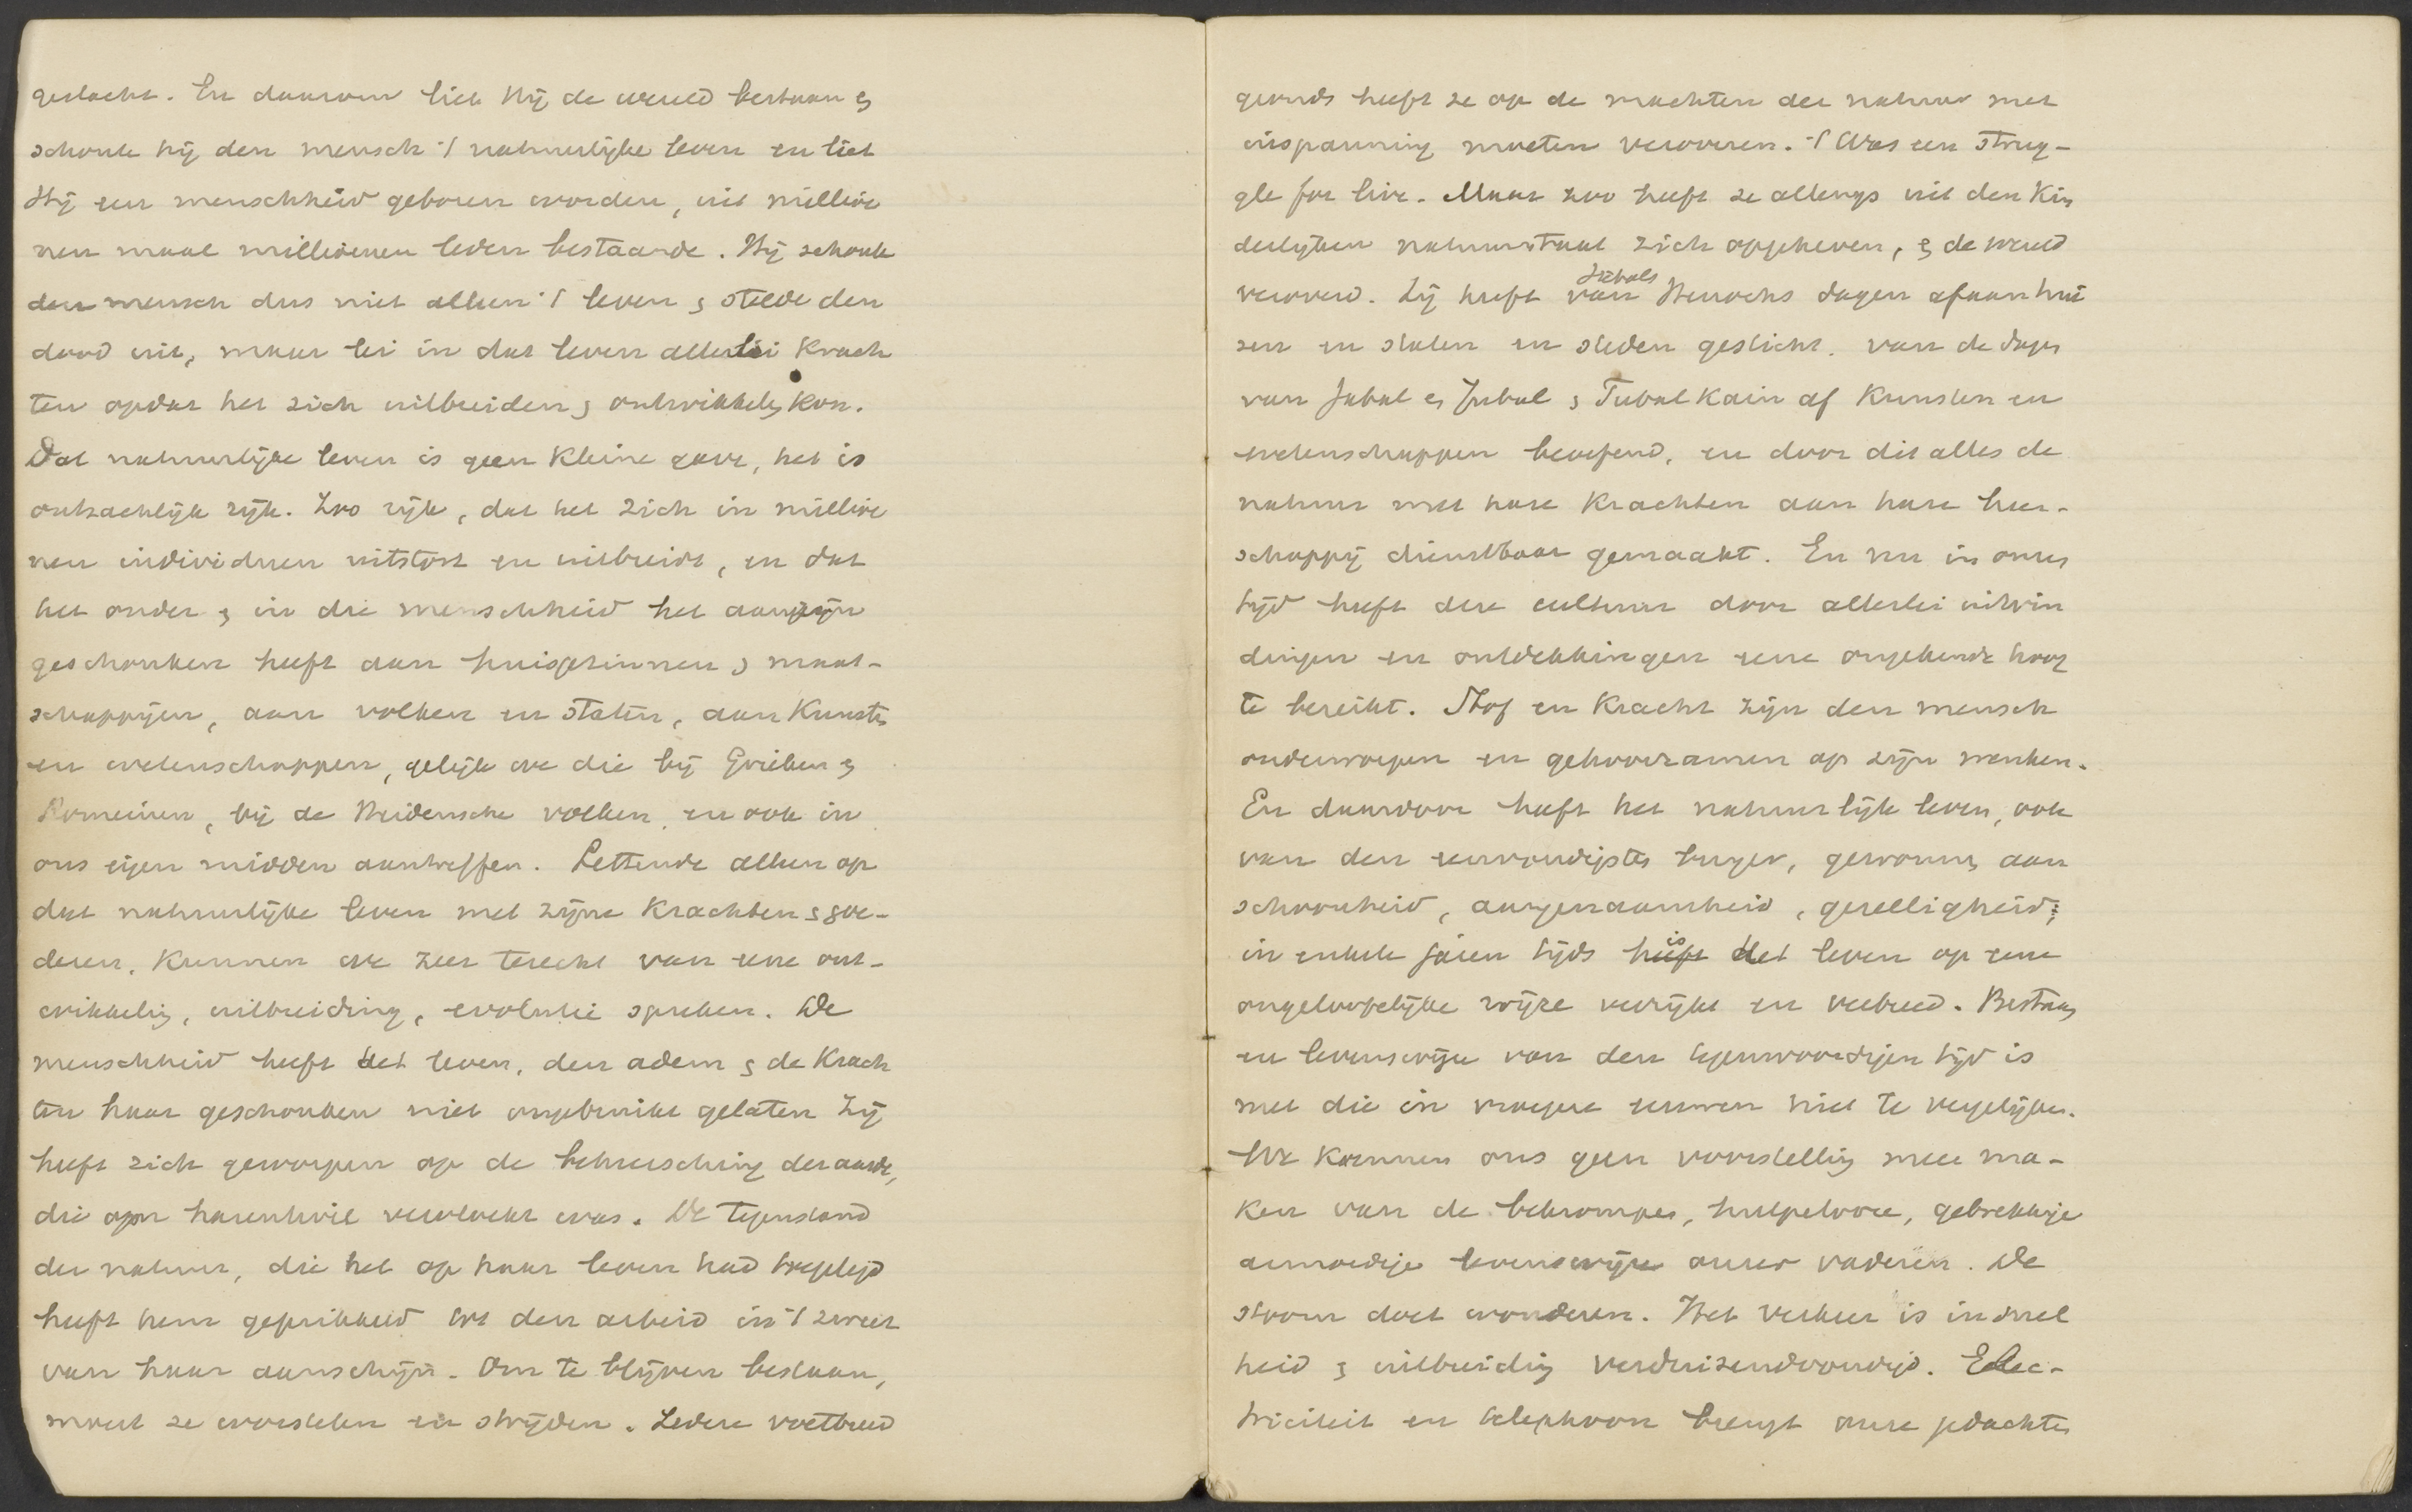 geslacht. En daarom liet Hij de wereld bestaan &
schonk hij den mensch 't natuurlijke leven en liet
Hij een menschheid geboren worden, uit millioe
nen maal millioenen leden bestaande. Hij schonk
den mensch dus niet alleen 't leven & stelde den
dood uit, maar lei in dat leven allerlei krach
ten opdat het zich uitbreiden & ontwikkelen kon.
Dat natuurlijke leven is geen kleine gave, het is
ontzachlijk rijk. Zoo rijk, dat het zich in millioe
nen individuen uitstort en uitbreidt, en dat
het onder & in die menschheid het aanzijn
geschonken heeft aan huisgezinnen & maat-
schappijen, aan volken en staten, aan kunsten
en wetenschappen, gelijk we die bij Grieken &
Romeinen, bij de Heidensche volken, en ook in
ons eigen midden aantreffen. Lettende alleen op
dat natuurlijke leven met zijne krachten & goe-
deren, kunnen we zeer terecht van eene ont-
wikkeling, uitbreiding, evolutie spreken. De
menschheid heeft het leven, den adem & de krach
ten haar geschonken niet ongebruikt gelaten Zij
heeft zich geworpen op de beheersching der aarde,
die om harentwil vervloekt was. De tegenstand
der natuur, die het op haar leven had toegelegd
heeft hem geprikkeld tot den arbeid in 't zweet
van haar aanschijn. Om te blijven bestaan,
moest ze worstelen en strijden. Iedere voetbreed
gronds heeft ze op de machten der natuur met
inspanning moeten veroveren. 't Was een strug-
gle for live. Maar zoo heeft ze allengs uit den kin
derlijken natuurstaat zich opgeheven, & de wereld
veroverd. Zij heeft van Jabals Henochs dagen af aan hui
zen en staten en steden gesticht. van de dagen
van Jabal en Jubal & Tubal Kain af kunsten en
wetenschappen beoefend, en door dit alles de
natuur met hare krachten aan hare heer-
schappij dienstbaar gemaakt. En nu in onzen
tijd heeft deze cultuur door allerlei uitvin
dingen en ontdekkingen eene ongekende hoog
te bereikt. Stof en kracht zijn den mensch
onderworpen en gehoorzamen op zijn wenken.
En daardoor heeft het natuurlijk leven, ook
van den eenvoudigsten burger, gewonnen aan
schoonheid, aangenaamheid, gezelligheid;
in enkele jaren tijds heeft is het leven op eene
ongelooflijke wijze verrijkt en verbreed. Bestaan
en levenswijze van den tegenwoordigen tijd is
met die in vroegere eeuwen niet te vergelijken.
We kunnen ons geen voorstelling meer ma-
ken van de bekrompen, hulpelooze, gebrekkige
armoedige levenswijze onzer vaderen. De
stoom doet wonderen. Het verkeer is in snel
heid & uitbreiding verduizendvoudigd. Elec-
triciteit en telephoon brengt onze gedachten